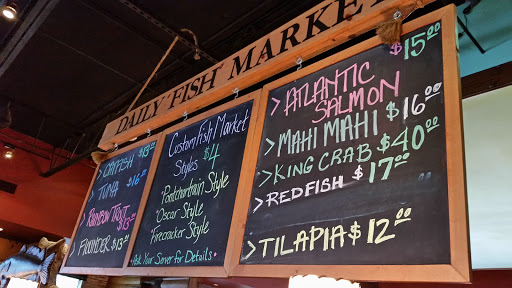 DAILY FISH MARKET
CATFISH $13.00
TUNA $16.00
RAINBOW TROUT
$15.00
FLOUNDER $13.00
Custom Fish Market
Styles $4
• Pontchartrain Style
• Oscar Style
• Firecracker Style
• Ask Your Server for Details •
> ATLANTIC $15.00
SALMON
> MAHI MAHI $16.00
> KING CRAB $40.00
> REDFISH $17.00
> TILAPIA $12.00